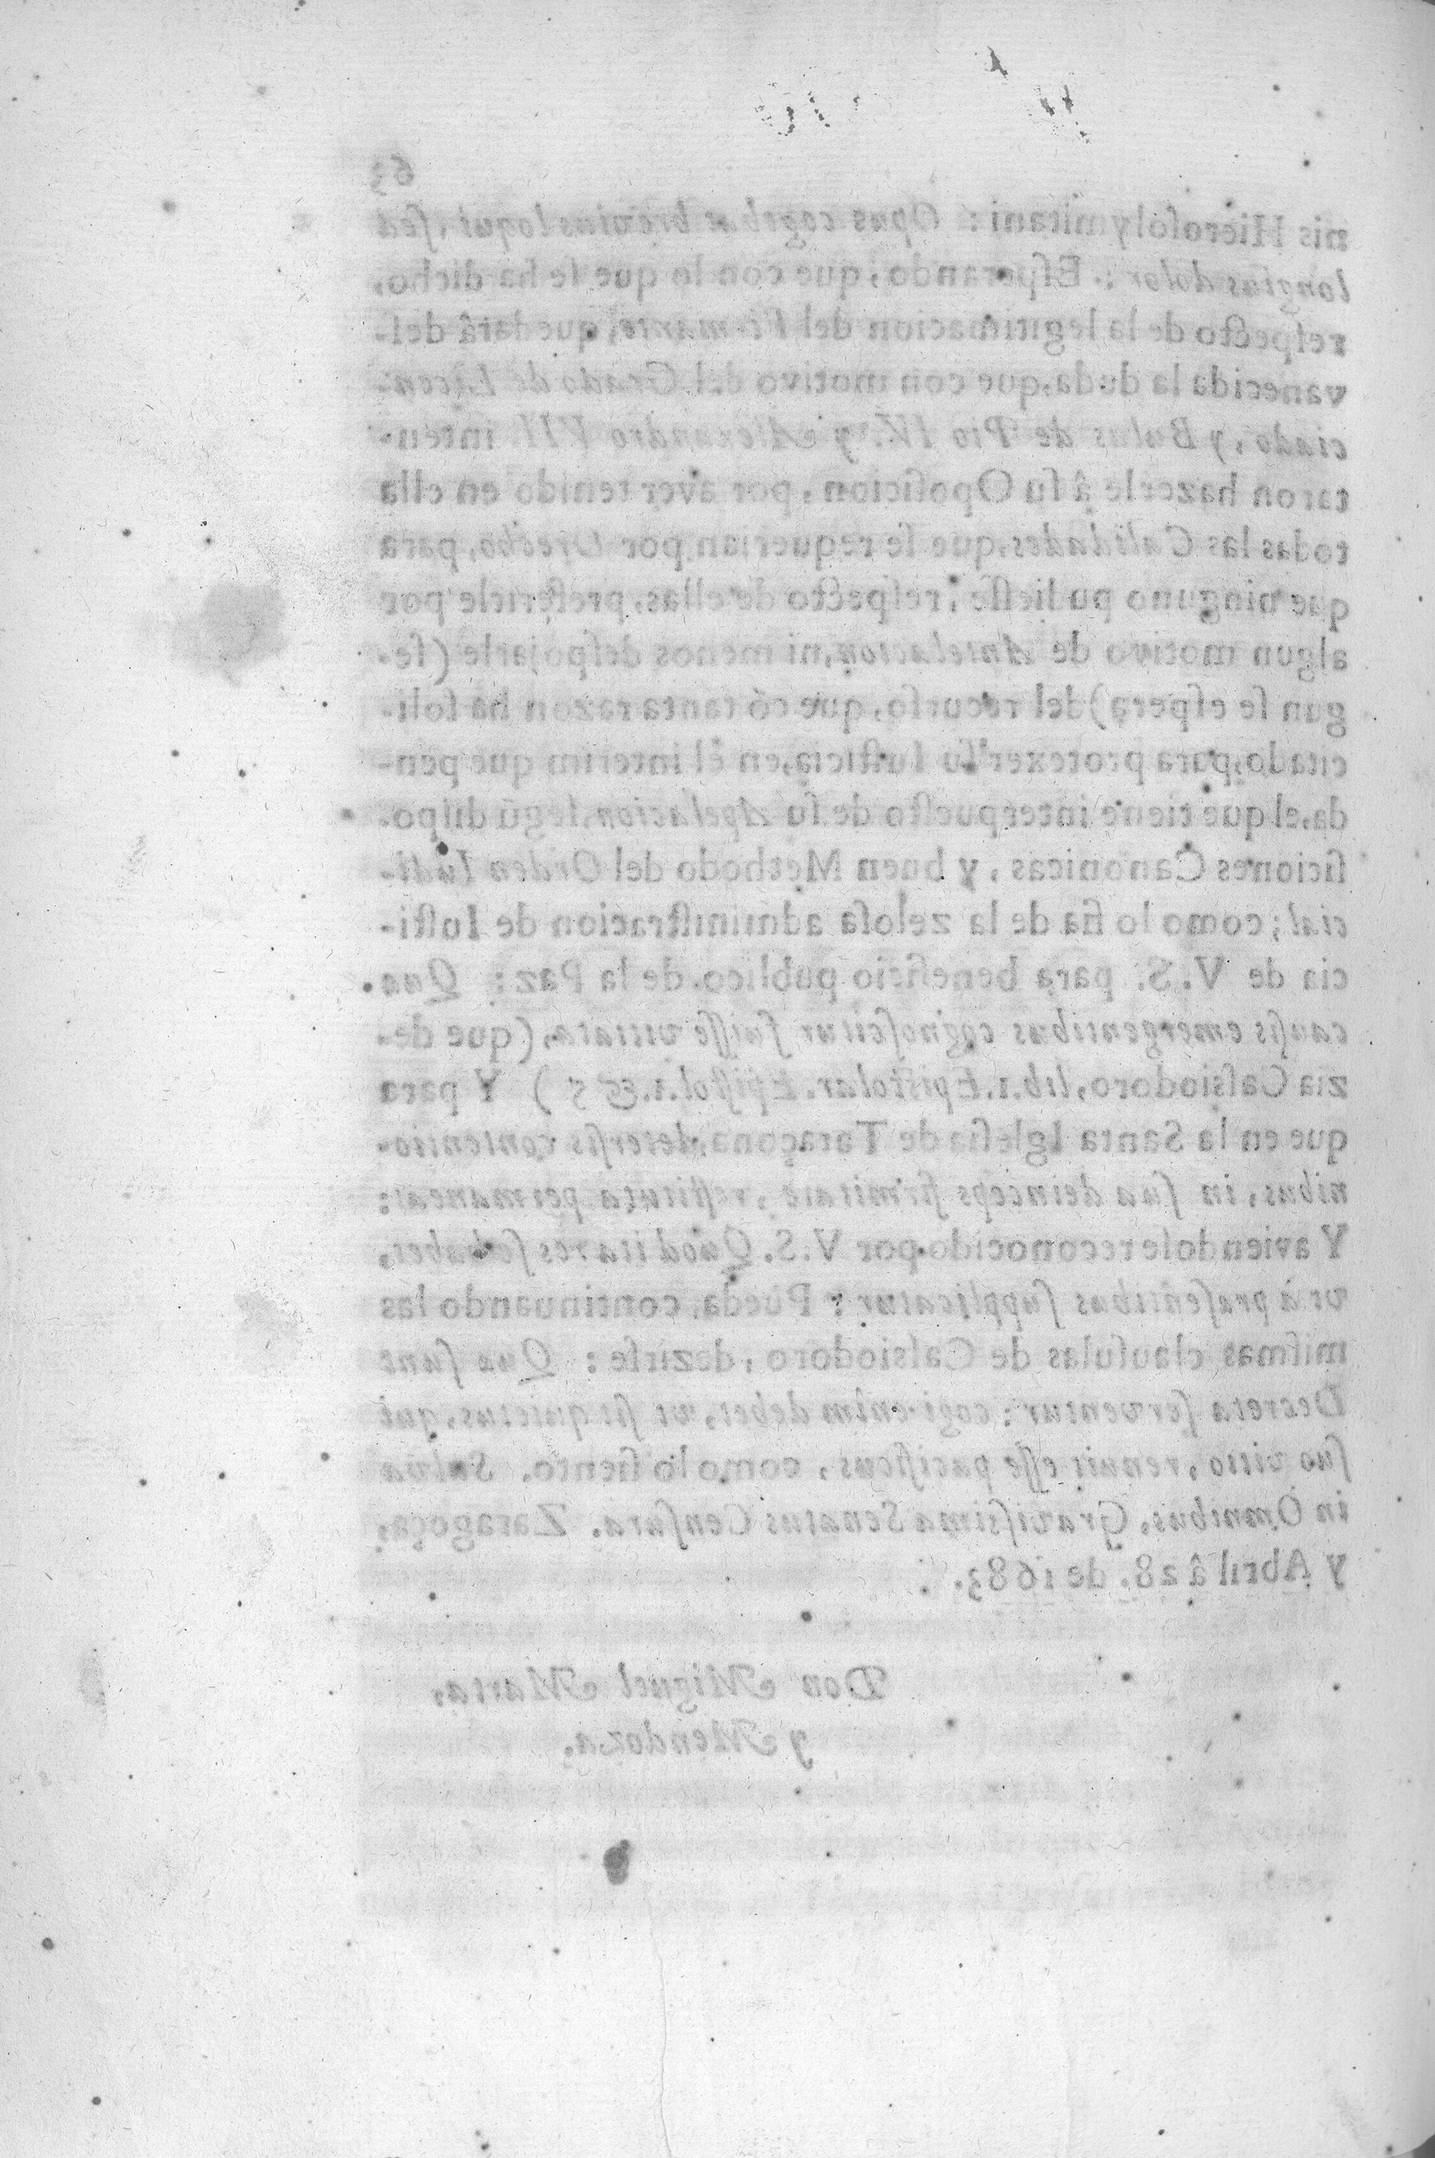 63
nis Hierosolymitani: Opus cogebat brevius loqui, sed
longius dolor: Esperando, que con lo que se ha dicho,
respecto de la legitimacion del Firmante, quedarâ des-
vanecida la duda, que con motivo del Grado de Licen-
ciado, y Bulas de Pio IV. y Alexandro VII. inten-
taron hazerle â su Oposicion, por aver tenido en ella
todas las Calidades, que se requerian por Drecho, para
que ninguno pudiesse, respecto de ellas, preferirle por
algun motivo de Antelacion, ni menos despojarle (se-
gun se espera) del recurso, que cõ tanta razon ha soli-
citado, para protexer su Iusticia, en el interim que pen-
da, el que tiene interpuesto de su Apelacion, segũ dispo-
siciones Canonicas, y buen Methodo del Orden Iudi-
cial; como lo fia de la zelosa administracion de Iusti-
cia de V. S. para beneficio publico de la Paz: Qua
causis emergentibus cognoscitur fuisse vitiata, (que de-
zia Casiodoro, lib. 1. Epistolar. Epistol. 1. & 5) Y para
que en la Santa Iglesia de Taraçona, detersis contentio-
nibus, in sua deinceps firmitate, restituta permaneat:
Y aviendose reconocido por V. S. Quod ita res se habet,
vt á præsentibus supplicatur: Pueda, continuando las
mismas clausulas de Casiodoro, dezirse: Qua sunt
Decreta serventur: cogi enim debet, vt sit quietus, qui
suo vitio, renuit esse pacificus, como lo siento. Salva
in Omnibus, Gravissima Senatus Censura. Zaragoça,
y Abril â 28. de 1683.
Don Miguel Marta,
y Mendoza.